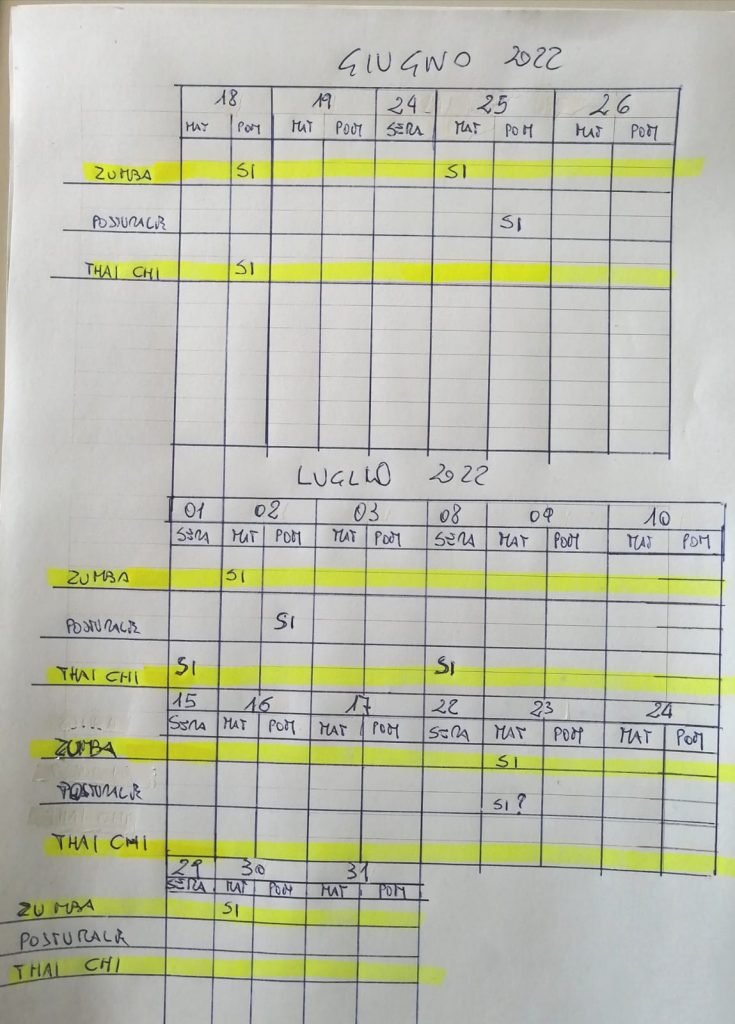 GIUGNO 2022
18 19 24 25 26
MAT POM MAT POM SERA MAT POM MAT POM
ZUMBA SI SI
POSTURALE SI
THAI CHI SI
LUGLIO 2022
01 02 03 08 09 10
SERA MAT POM MAT POM SERA MAT POM MAT POM
ZUMBA SI
POSTURALE SI
THAI CHI SI SI
15 16 17 22 23 24
SERA MAT POM MAT POM SERA MAT POM MAT POM
ZUMBA SI
POSTURALE SI?
THAI CHI
29 30 31
SERA MAT POM MAT POM
ZUMBA SI
POSTURALE
THAI CHI